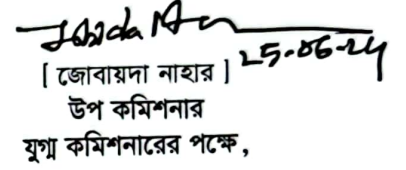 25-06-24
[ জোবায়দা নাহার ]
উপ কমিশনার
যুগ্ম কমিশনারের পক্ষে,